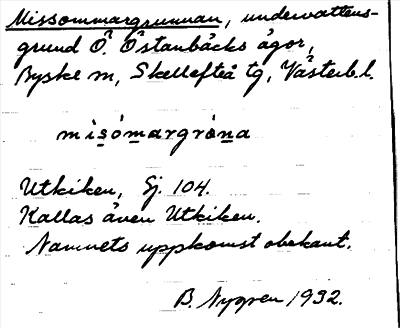 Missommargrunnan, undervattens-
grund Ö. Östanbäcks ägor,
Byske sn, Skellefteå tg, Västerb. l.
misómargròna
Utkiken, Sj. 104.
Kallas även Utkiken.
Namnets uppkomst obekant.
B. Nygren 1932.